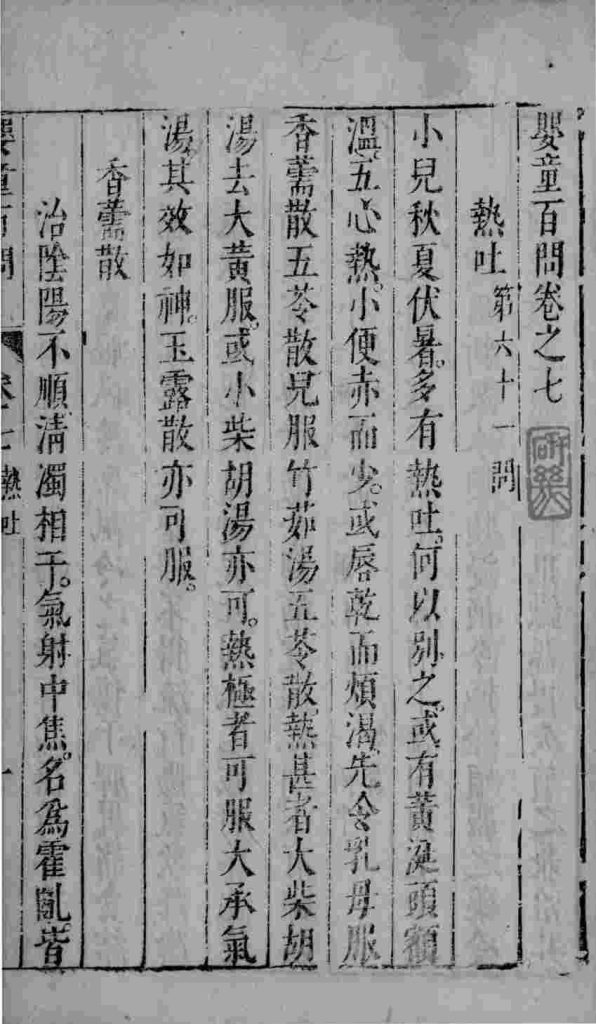 嬰童百問卷之七
熱吐 第六十一問
小兒秋夏伏暑。多有熱吐。何以別之。或有黃涎頭額
溫。五心熱。小便赤而少。或唇乾而煩渴。先令乳母服
香薷散五苓散兒服竹茹湯五苓散。熱甚者大柴胡
湯去大黃服。或小柴胡湯亦可。熱極者可服大承氣
湯其效如神。玉露散亦可服。
香薷散
治陰陽不順。清濁相干。氣射中焦。名爲霍亂。皆
嬰童百問 卷七 熱吐 一